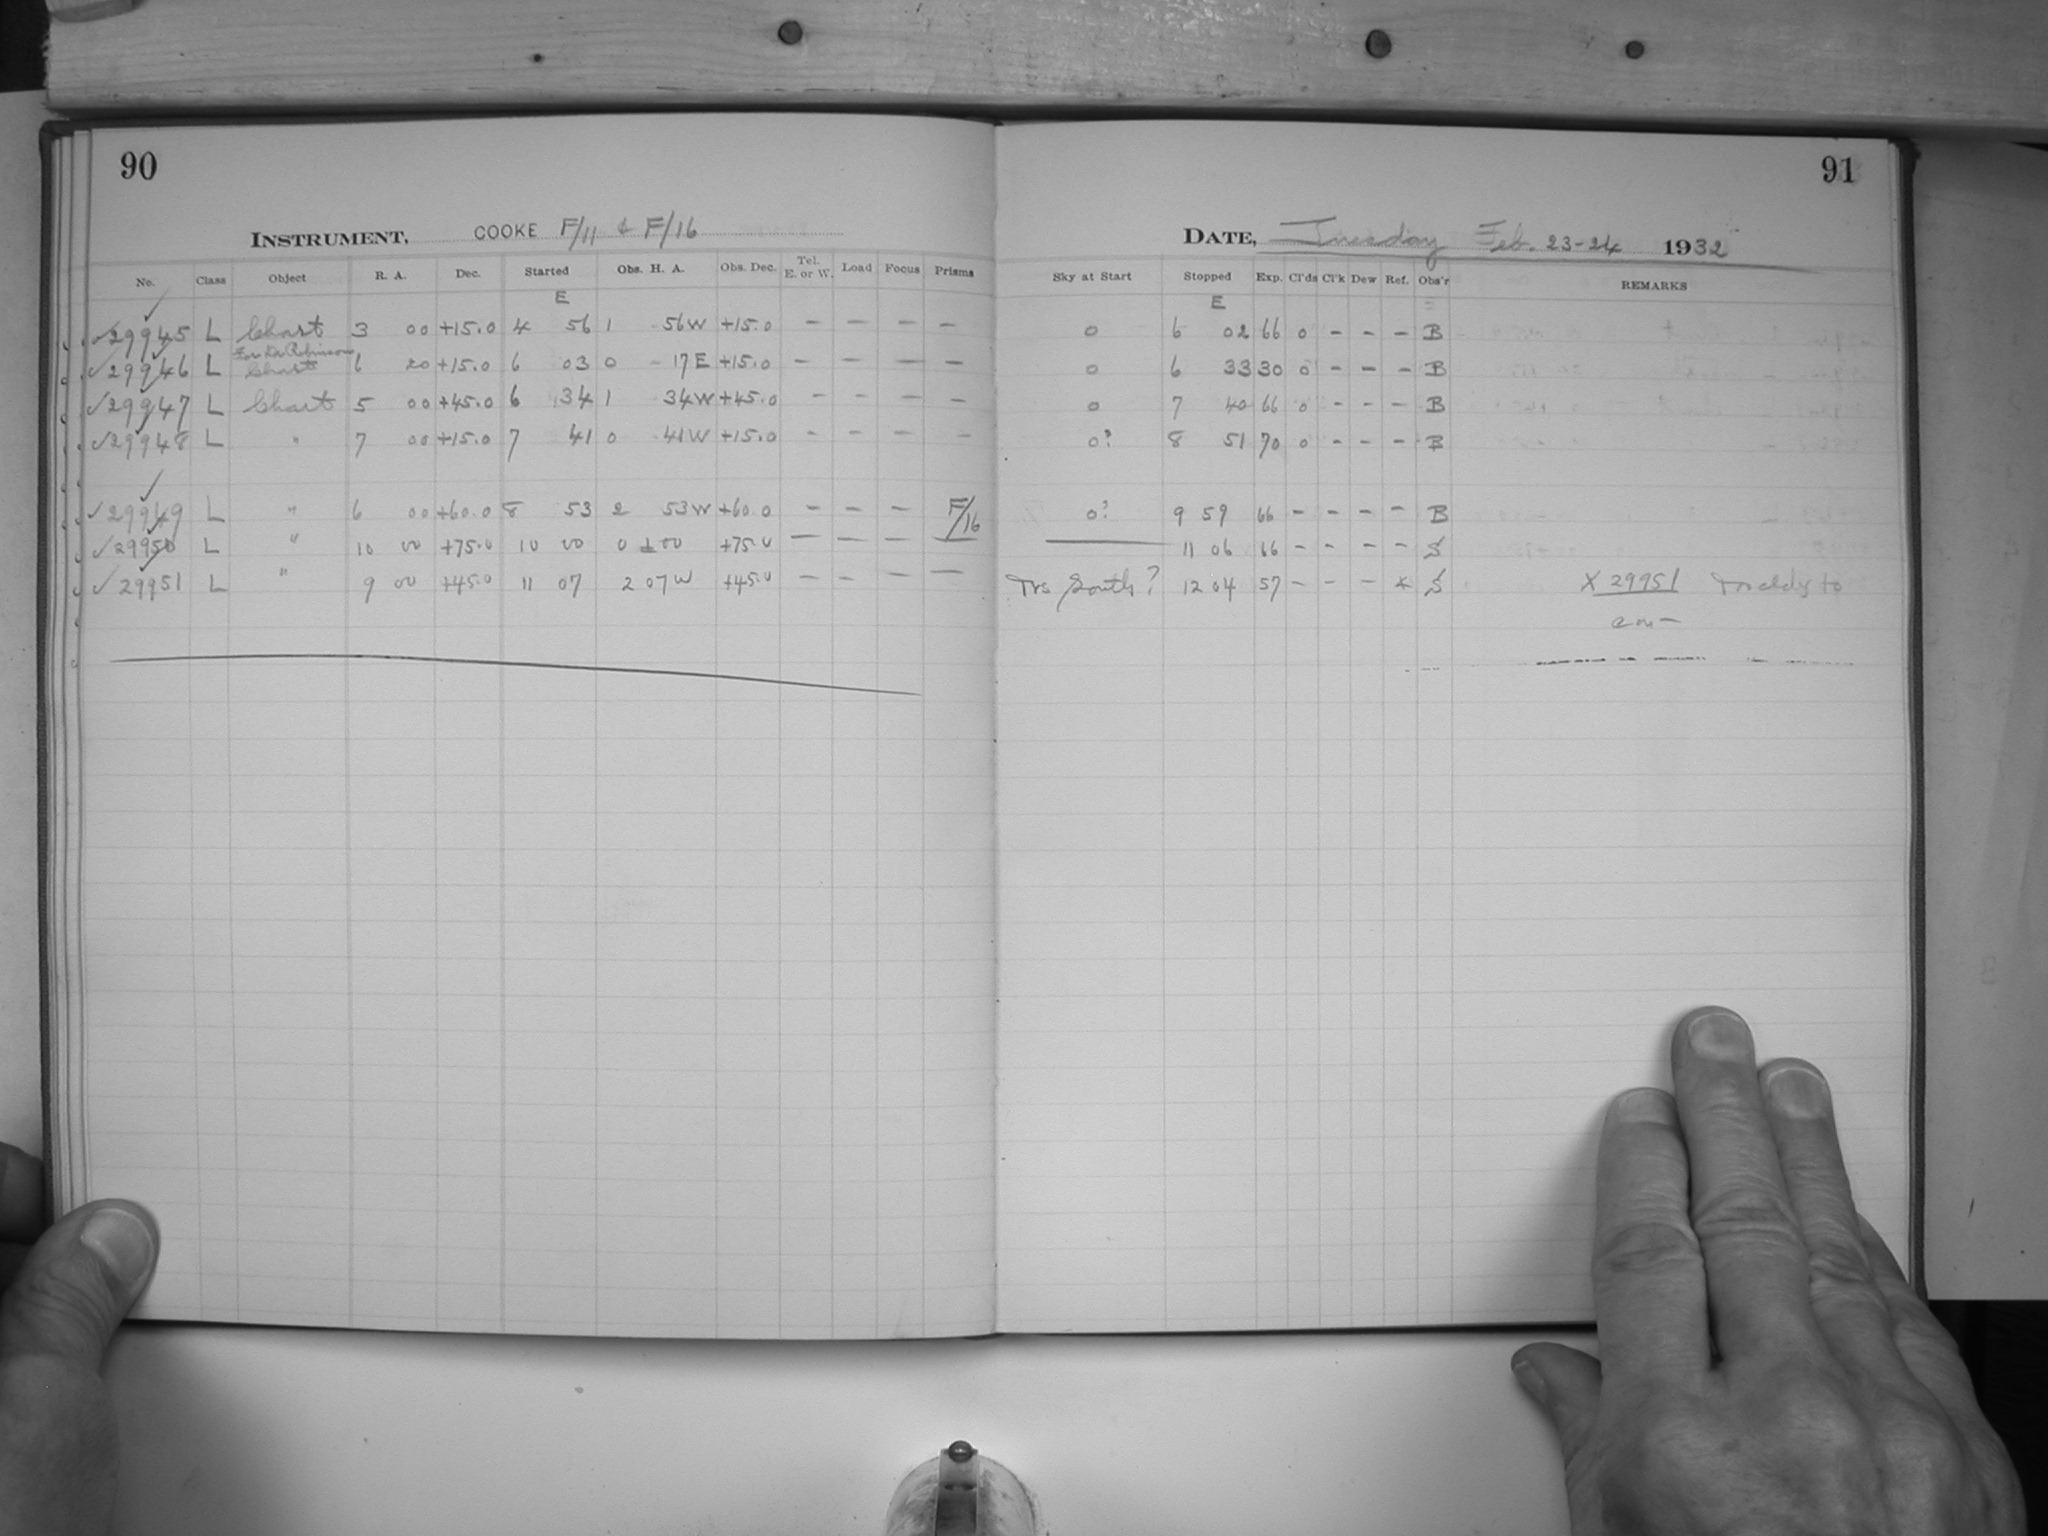 90
INSTRUMENT, COOKE F/11 & F/16
No. Class Object R. A. Dec. Started Obs. H. A. Obs. Dec. Tel. E. or W. Load Focus Prisms
E
✓29945 L Chart 3 00 +15.0 4 56 1 56W +15.0 – – – –
For Dr Robinson
✓29946 L Chart 6 20 +15.0 6 03 0 17E +15.0 – – – –
✓29947 L Chart 5 00 +45.0 6 34 1 34W +45.0 – – – –
✓29948 L " 7 00 +15.0 7 41 0 41W +15.0 – – – –
✓29949 L " 6 00 +60.0 8 53 2 53W +60.0 – – – F/16
✓29950 L " 10 00 +75.0 10 00 0 ±00 +75.0 – – – –
✓29951 L " 9 00 +45.0 11 07 2 07W +45.0 – – – –
91
DATE, Tuesday Feb. 23-24 1932
Sky at Start Stopped Exp. Cl'ds Cl'k Dew Ref. Obs'r REMARKS
E
0 6 02 66 0 – – – B
0 6 33 30 0 – – – B
0 7 40 66 0 – – – B
0? 8 51 70 0 – – – B
0? 9 59 66 – – – – B
— 11 06 66 – – – – S
South? 12 04 57 – – – * S X 29951 to